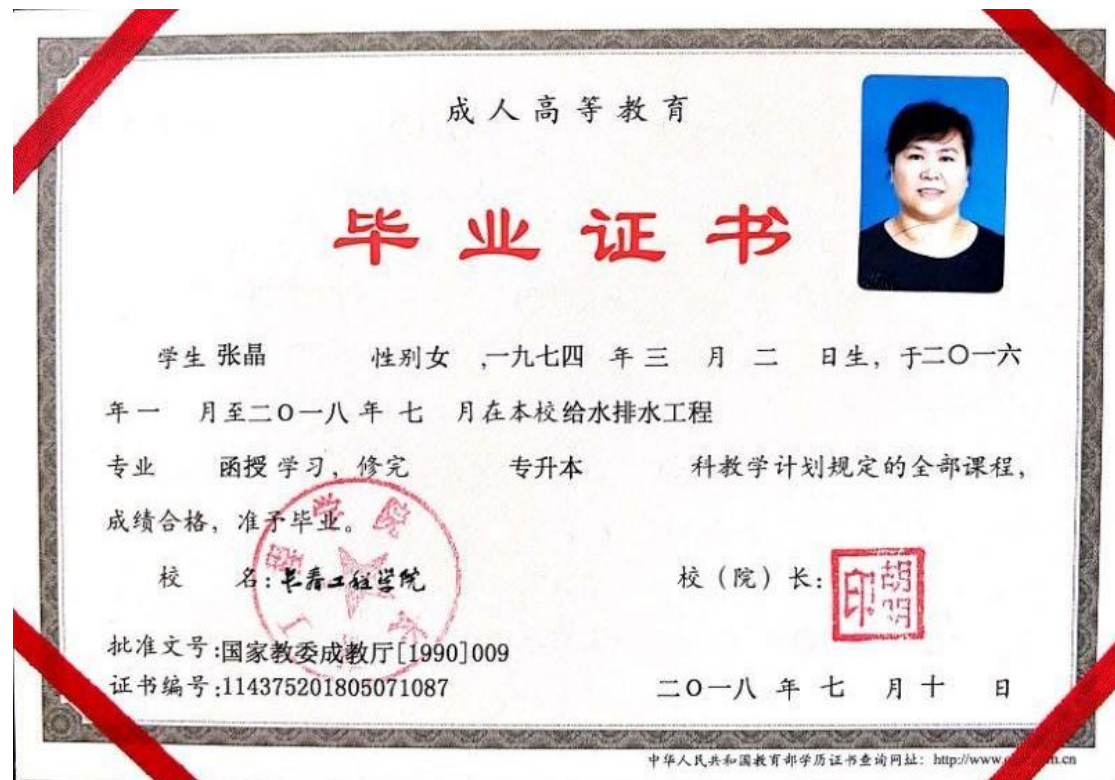 成人高等教育
毕业证书
学生 张晶 性别女 ,一九七四 年 三 月 二 日生, 于二〇一六
年 一 月至二〇一八 年 七 月在本校 给水排水工程
专业 函授 学习, 修完 专升本 科教学计划规定的全部课程,
成绩合格, 准予毕业。
校 名: 长春工程学院
校(院)长: 胡明印
批准文号:国家教委成教厅[1990]009
证书编号:114375201805071087
二〇一八 年 七 月 十 日
中华人民共和国教育部学历证书查询网址: http://www.